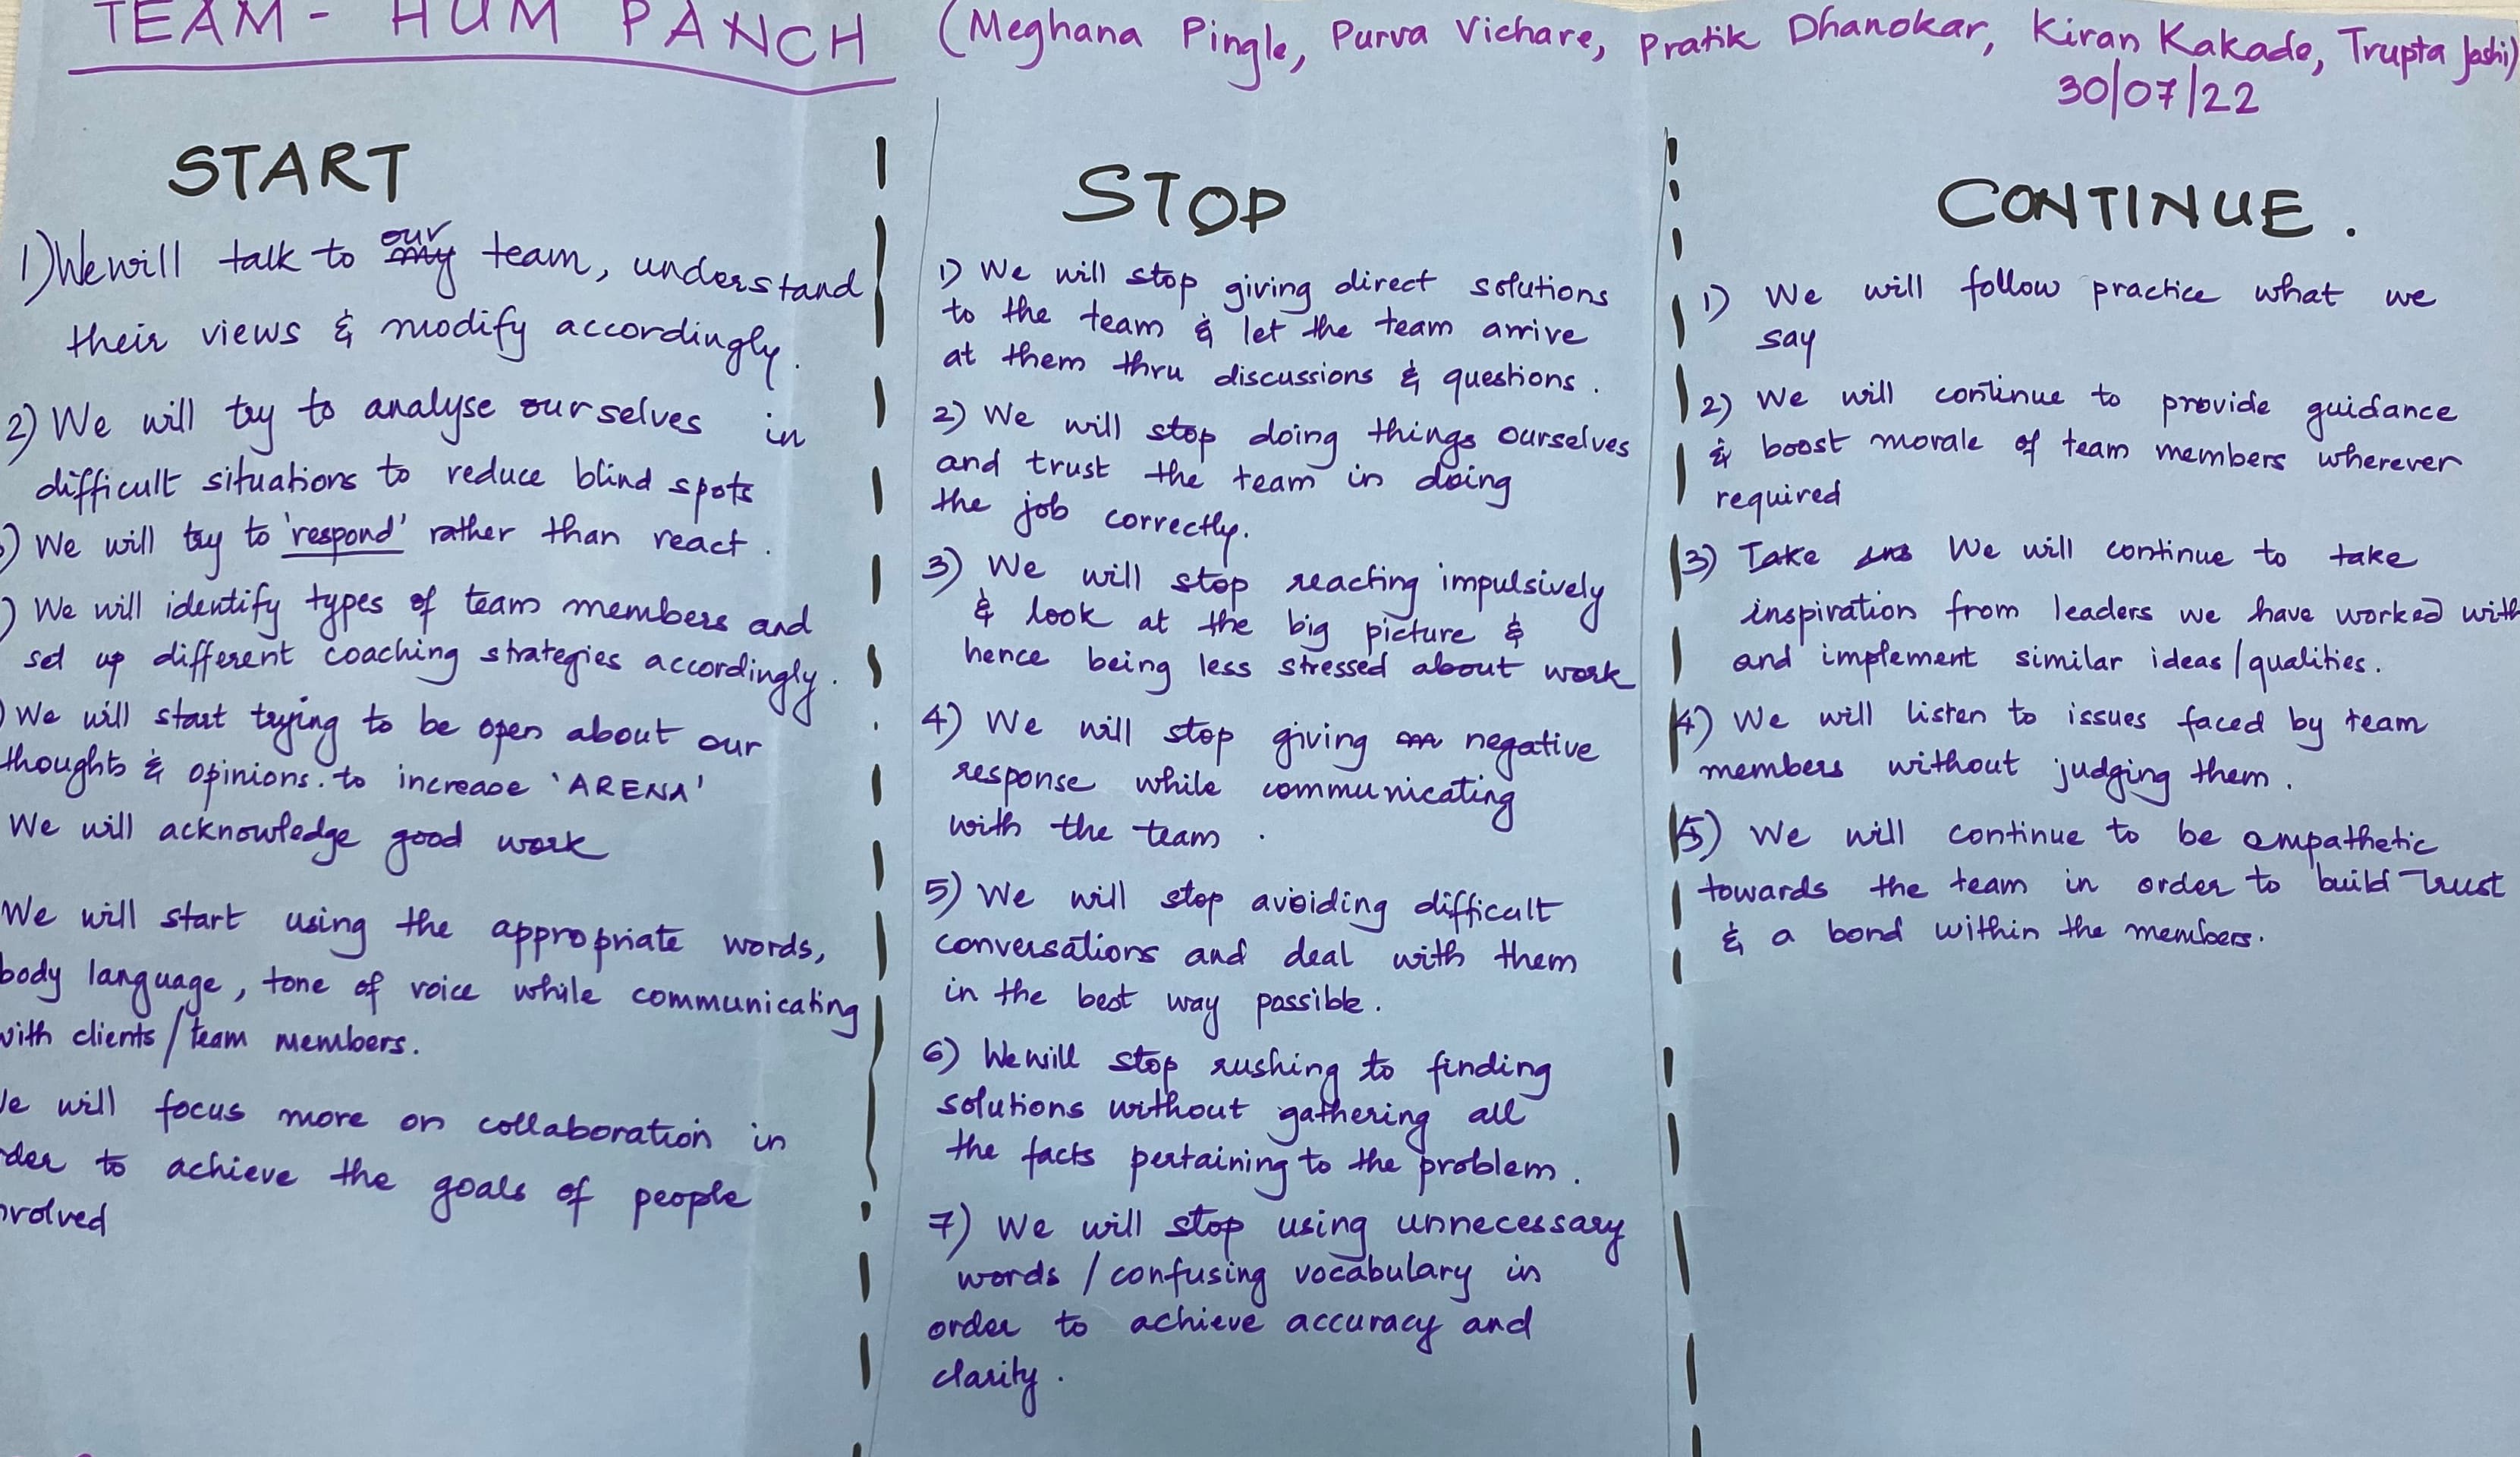 TEAM - HUM PANCH (Meghana Pingle, Purva Vichare, Pratik Dhanokar, Kiran Kakade, Trupta Joshi)
30/07/22
START
1) We will talk to our my team, understand
their views & modify accordingly.
2) We will try to analyse ourselves in
difficult situations to reduce blind spots
) We will try to 'respond' rather than react.
) We will identify types of team members and
set up different coaching strategies accordingly.
) We will start trying to be open about our
thoughts & opinions. to increase 'ARENA'
We will acknowledge good work
We will start using the appropriate words,
body language, tone of voice while communicating
with clients/team members.
We will focus more on collaboration in
der to achieve the goals of people
volved
STOP
1) We will stop giving direct solutions
to the team & let the team arrive
at them thru discussions & questions.
2) We will stop doing things ourselves
and trust the team in doing
the job correctly.
3) We will stop reacting impulsively
& look at the big picture &
hence being less stressed about work
4) We will stop giving negative
response while communicating
with the team.
5) We will stop avoiding difficult
conversations and deal with them
in the best way possible.
6) We will stop rushing to finding
solutions without gathering all
the facts pertaining to the problem.
7) We will stop using unnecessary
words / confusing vocabulary in
order to achieve accuracy and
clarity.
CONTINUE.
1) We will follow practice what we
say
2) We will continue to provide guidance
& boost morale of team members wherever
required
3) Take We will continue to take
inspiration from leaders we have worked with
and implement similar ideas/qualities.
4) We will listen to issues faced by team
members without judging them.
5) We will continue to be empathetic
towards the team in order to build trust
& a bond within the members.